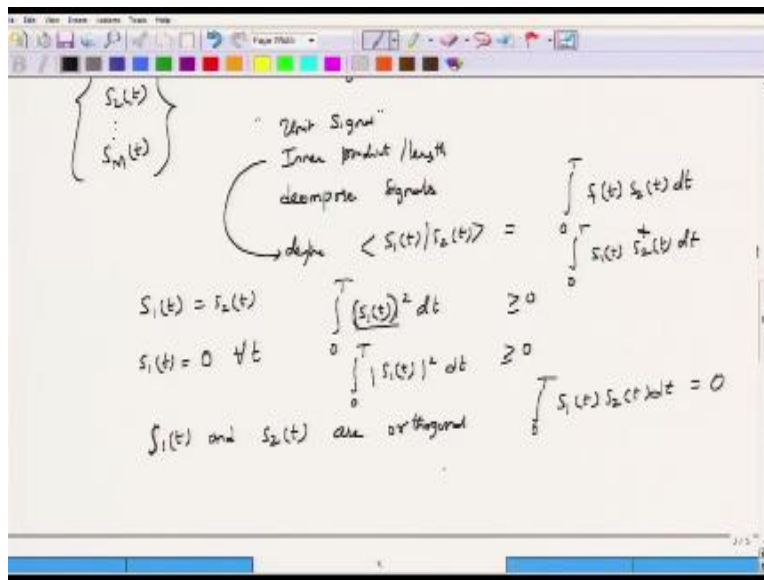 File Edit View Insert Actions Tools Help
Page Width
S₂(t)
⋮
S_M(t)
"Unit Signal"
Inner product / length
decompose signals
define < S₁(t) | S₂(t) > = ∫₀ᵀ S₁(t) S₂(t) dt
∫₀ᵀ S₁(t) S₂*(t) dt
S₁(t) = S₂(t) ∫₀ᵀ (S₁(t))² dt ≥ 0
S₁(t) = 0 ∀t ∫₀ᵀ |S₁(t)|² dt ≥ 0
S₁(t) and S₂(t) are orthogonal ∫₀ᵀ S₁(t) S₂(t) dt = 0